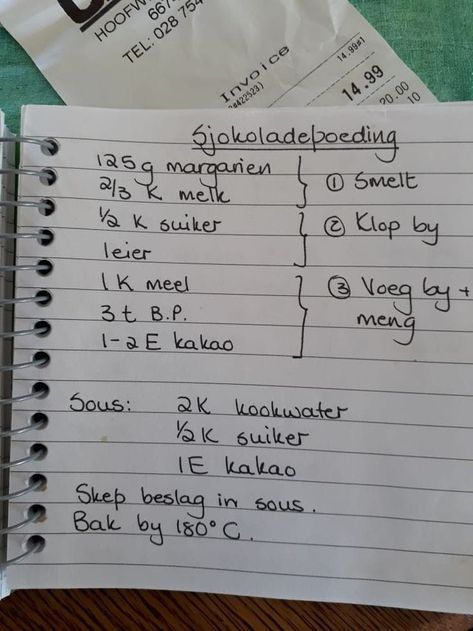 HOOFW
667
TEL: 028 754
Invoice
(#422523)
14.99#1
14.99
20.00
10
Sjokoladepoeding
125g margarien
2/3 K melk
① Smelt
½ K suiker
1eier
② Klop by
1 K meel
3 t B.P.
1-2 E kakao
③ Voeg by +
meng
Sous: 2K kookwater
½K suiker
1E kakao
Skep beslag in sous.
Bak by 180°C.